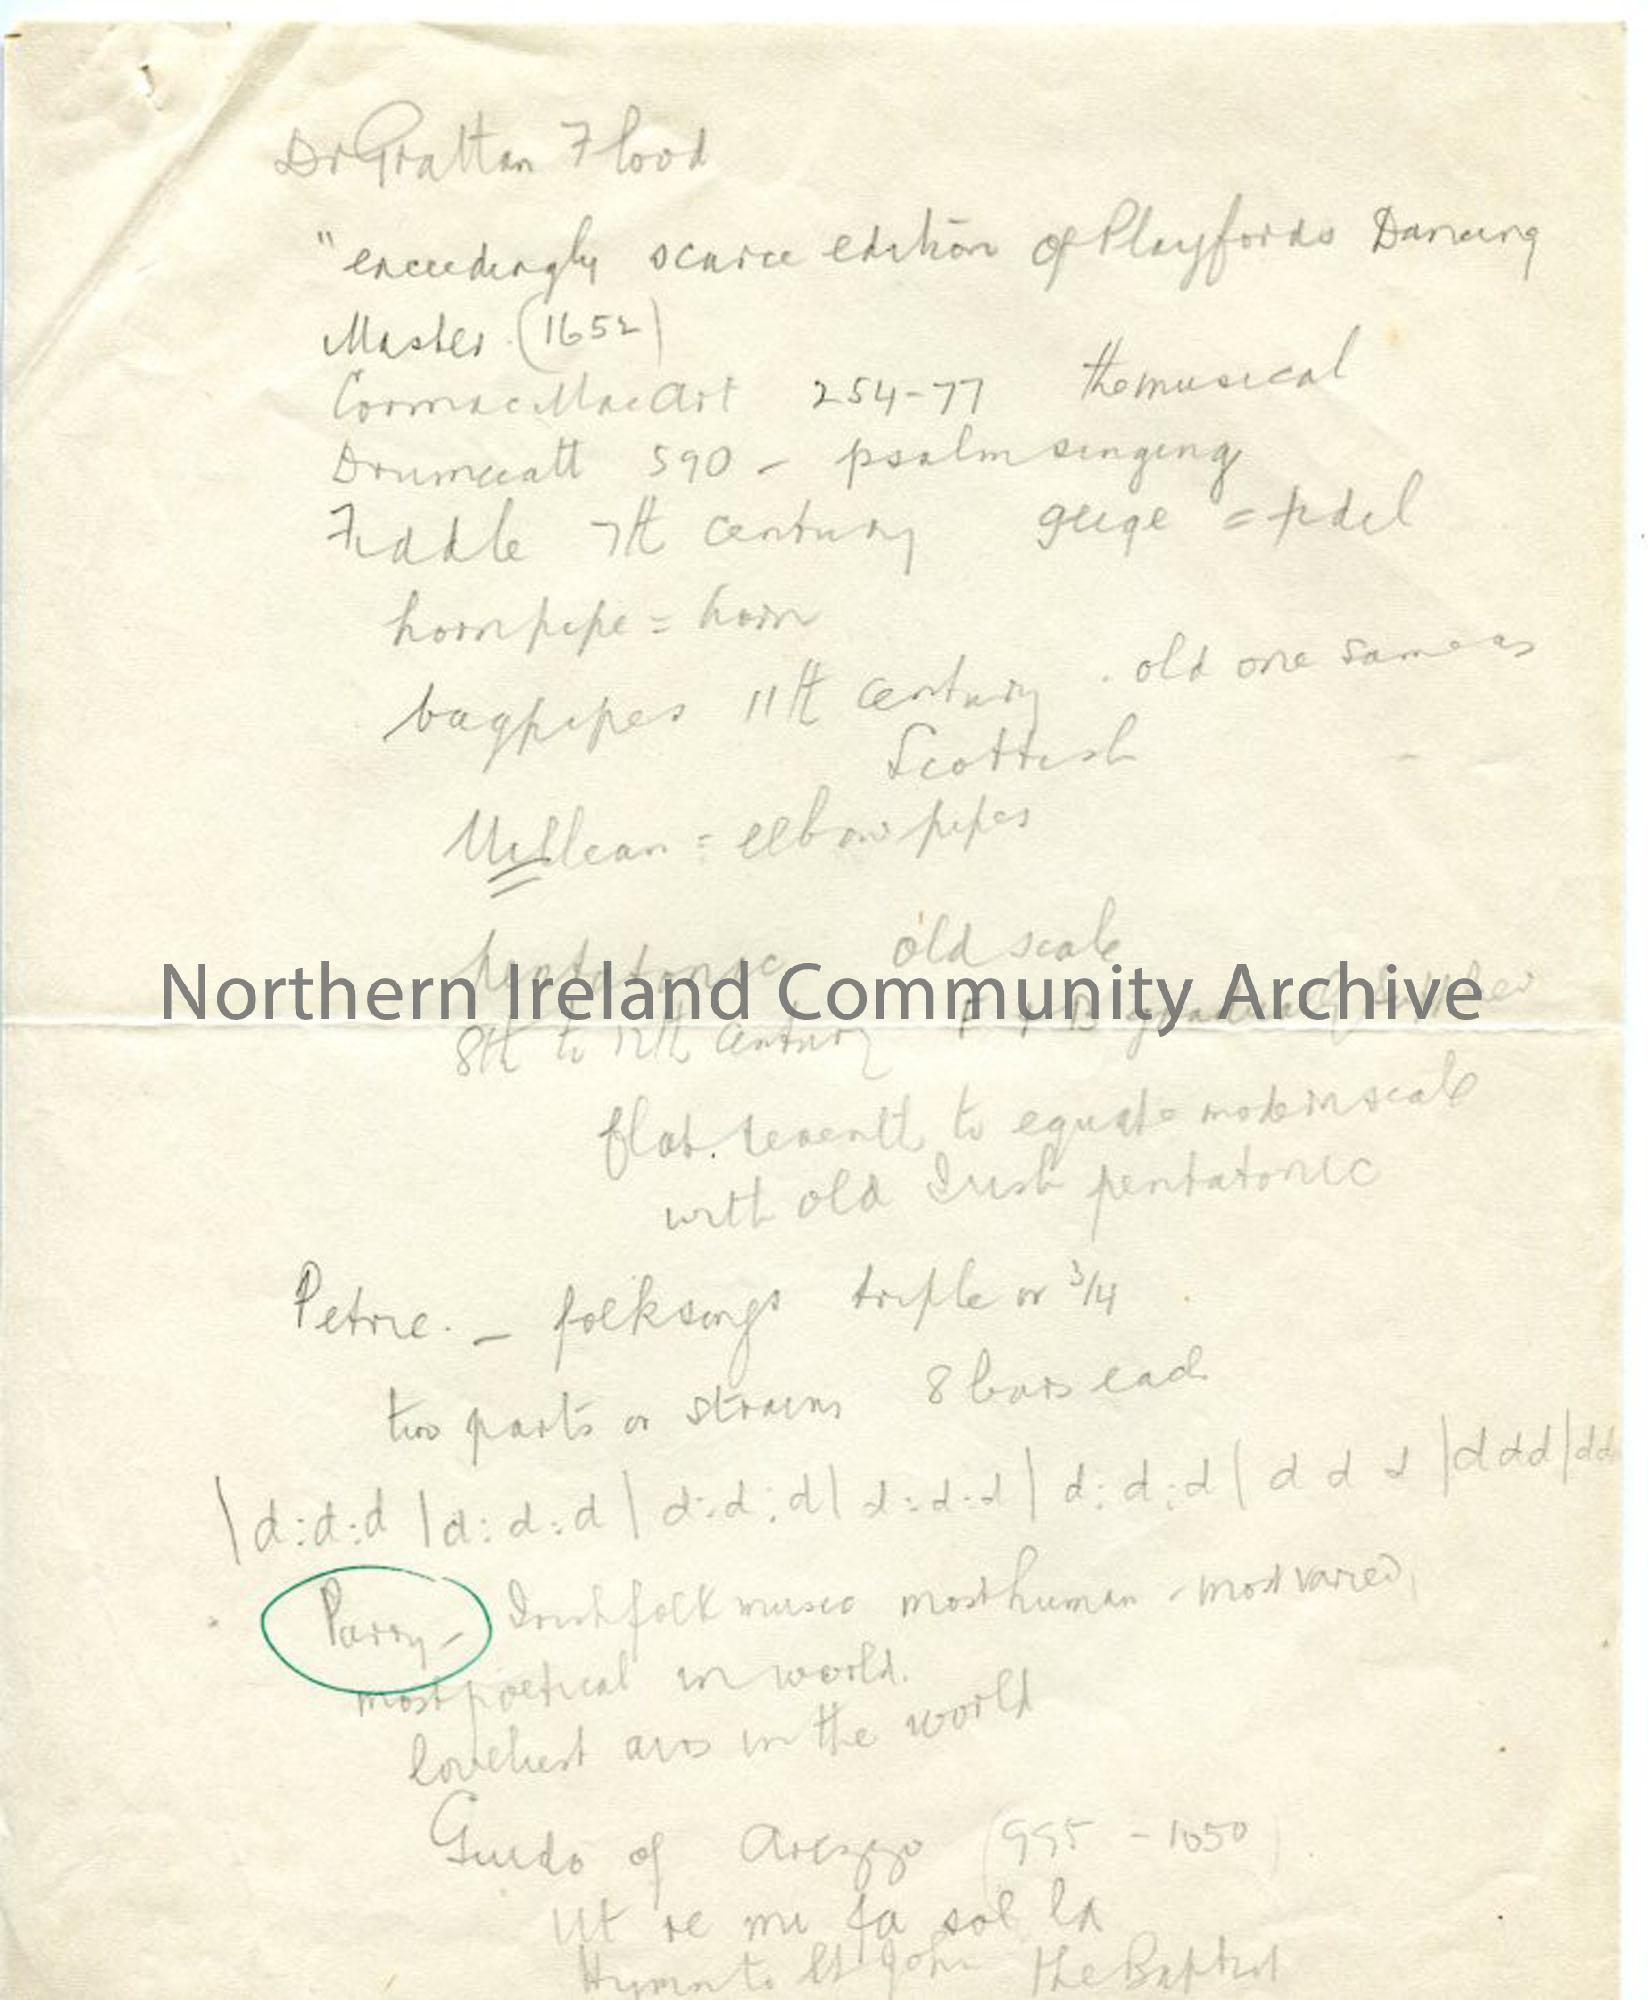 Dr Grattan Flood
"exceedingly scarce edition of Playfords Dancing
Master. (1652)
Cormac MacArt 254-77 the musical
Drumceatt 590 - psalm singing
Fiddle 7th century geige = fidil
hornpipe = horn
bagpipes 11th century . old one same as
Scottish
Uillean = elbow pipes
old scale
Northern Ireland Community Archive
8th to 12th century F + B gradually
flat seventh to equate modern scale
with old Irish pentatonic
Petrie. - folksongs triple or 3/4
two parts or strains 8 bars each
| d:d:d | d:d:d | d:d:d | d:d:d | d:d:d | d d d | d d d | dd
Parry - Irish folk music most human - most varied,
most poetical in world.
loveliest airs in the world
Guido of Arezzo (995 - 1050)
Ut re mi fa sol la
Hymn to St John the Baptist